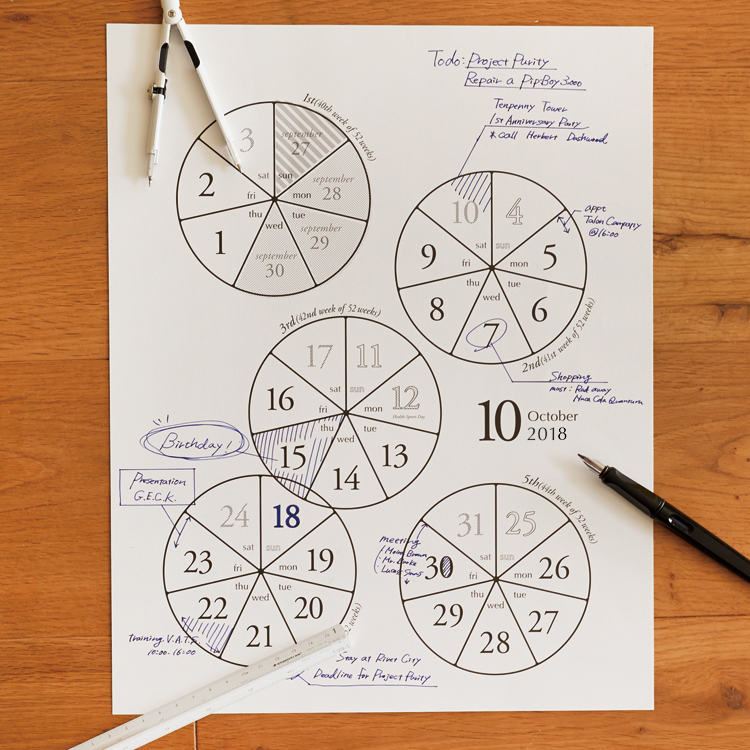 Todo: Project Purity
Repair a PipBoy 3000
Tenpenny Tower
1st Anniversary Party
* call Herbert Dashwood
1st (40th week of 52 weeks)
3
september
27
sat
sun
2
fri
mon
september
28
1
thu
wed
tue
september
29
september
30
10
4
sat
sun
9
fri
mon
5
thu
wed
tue
8
7
6
2nd (41st week of 52 weeks)
appt
Talon Company
@16:00
Shopping
most: Rad away
Nuca Cola Quantum
3rd (42nd week of 52 weeks)
17
11
sat
sun
16
fri
mon
12
Health-Sports Day
thu
wed
tue
15
14
13
Birthday!
10
October
2018
Presentation
G.E.C.K.
24
18
sat
sun
23
fri
mon
19
thu
wed
tue
22
21
20
weeks)
Training V.A.T.S.
10:00-16:00
Stay at River City
Deadline for Project Purity
5th (44th week of 52 weeks)
31
25
sat
sun
30
fri
mon
26
thu
wed
tue
29
28
27
meeting
Moira Brown
Mr. Burke
Lucas Simms